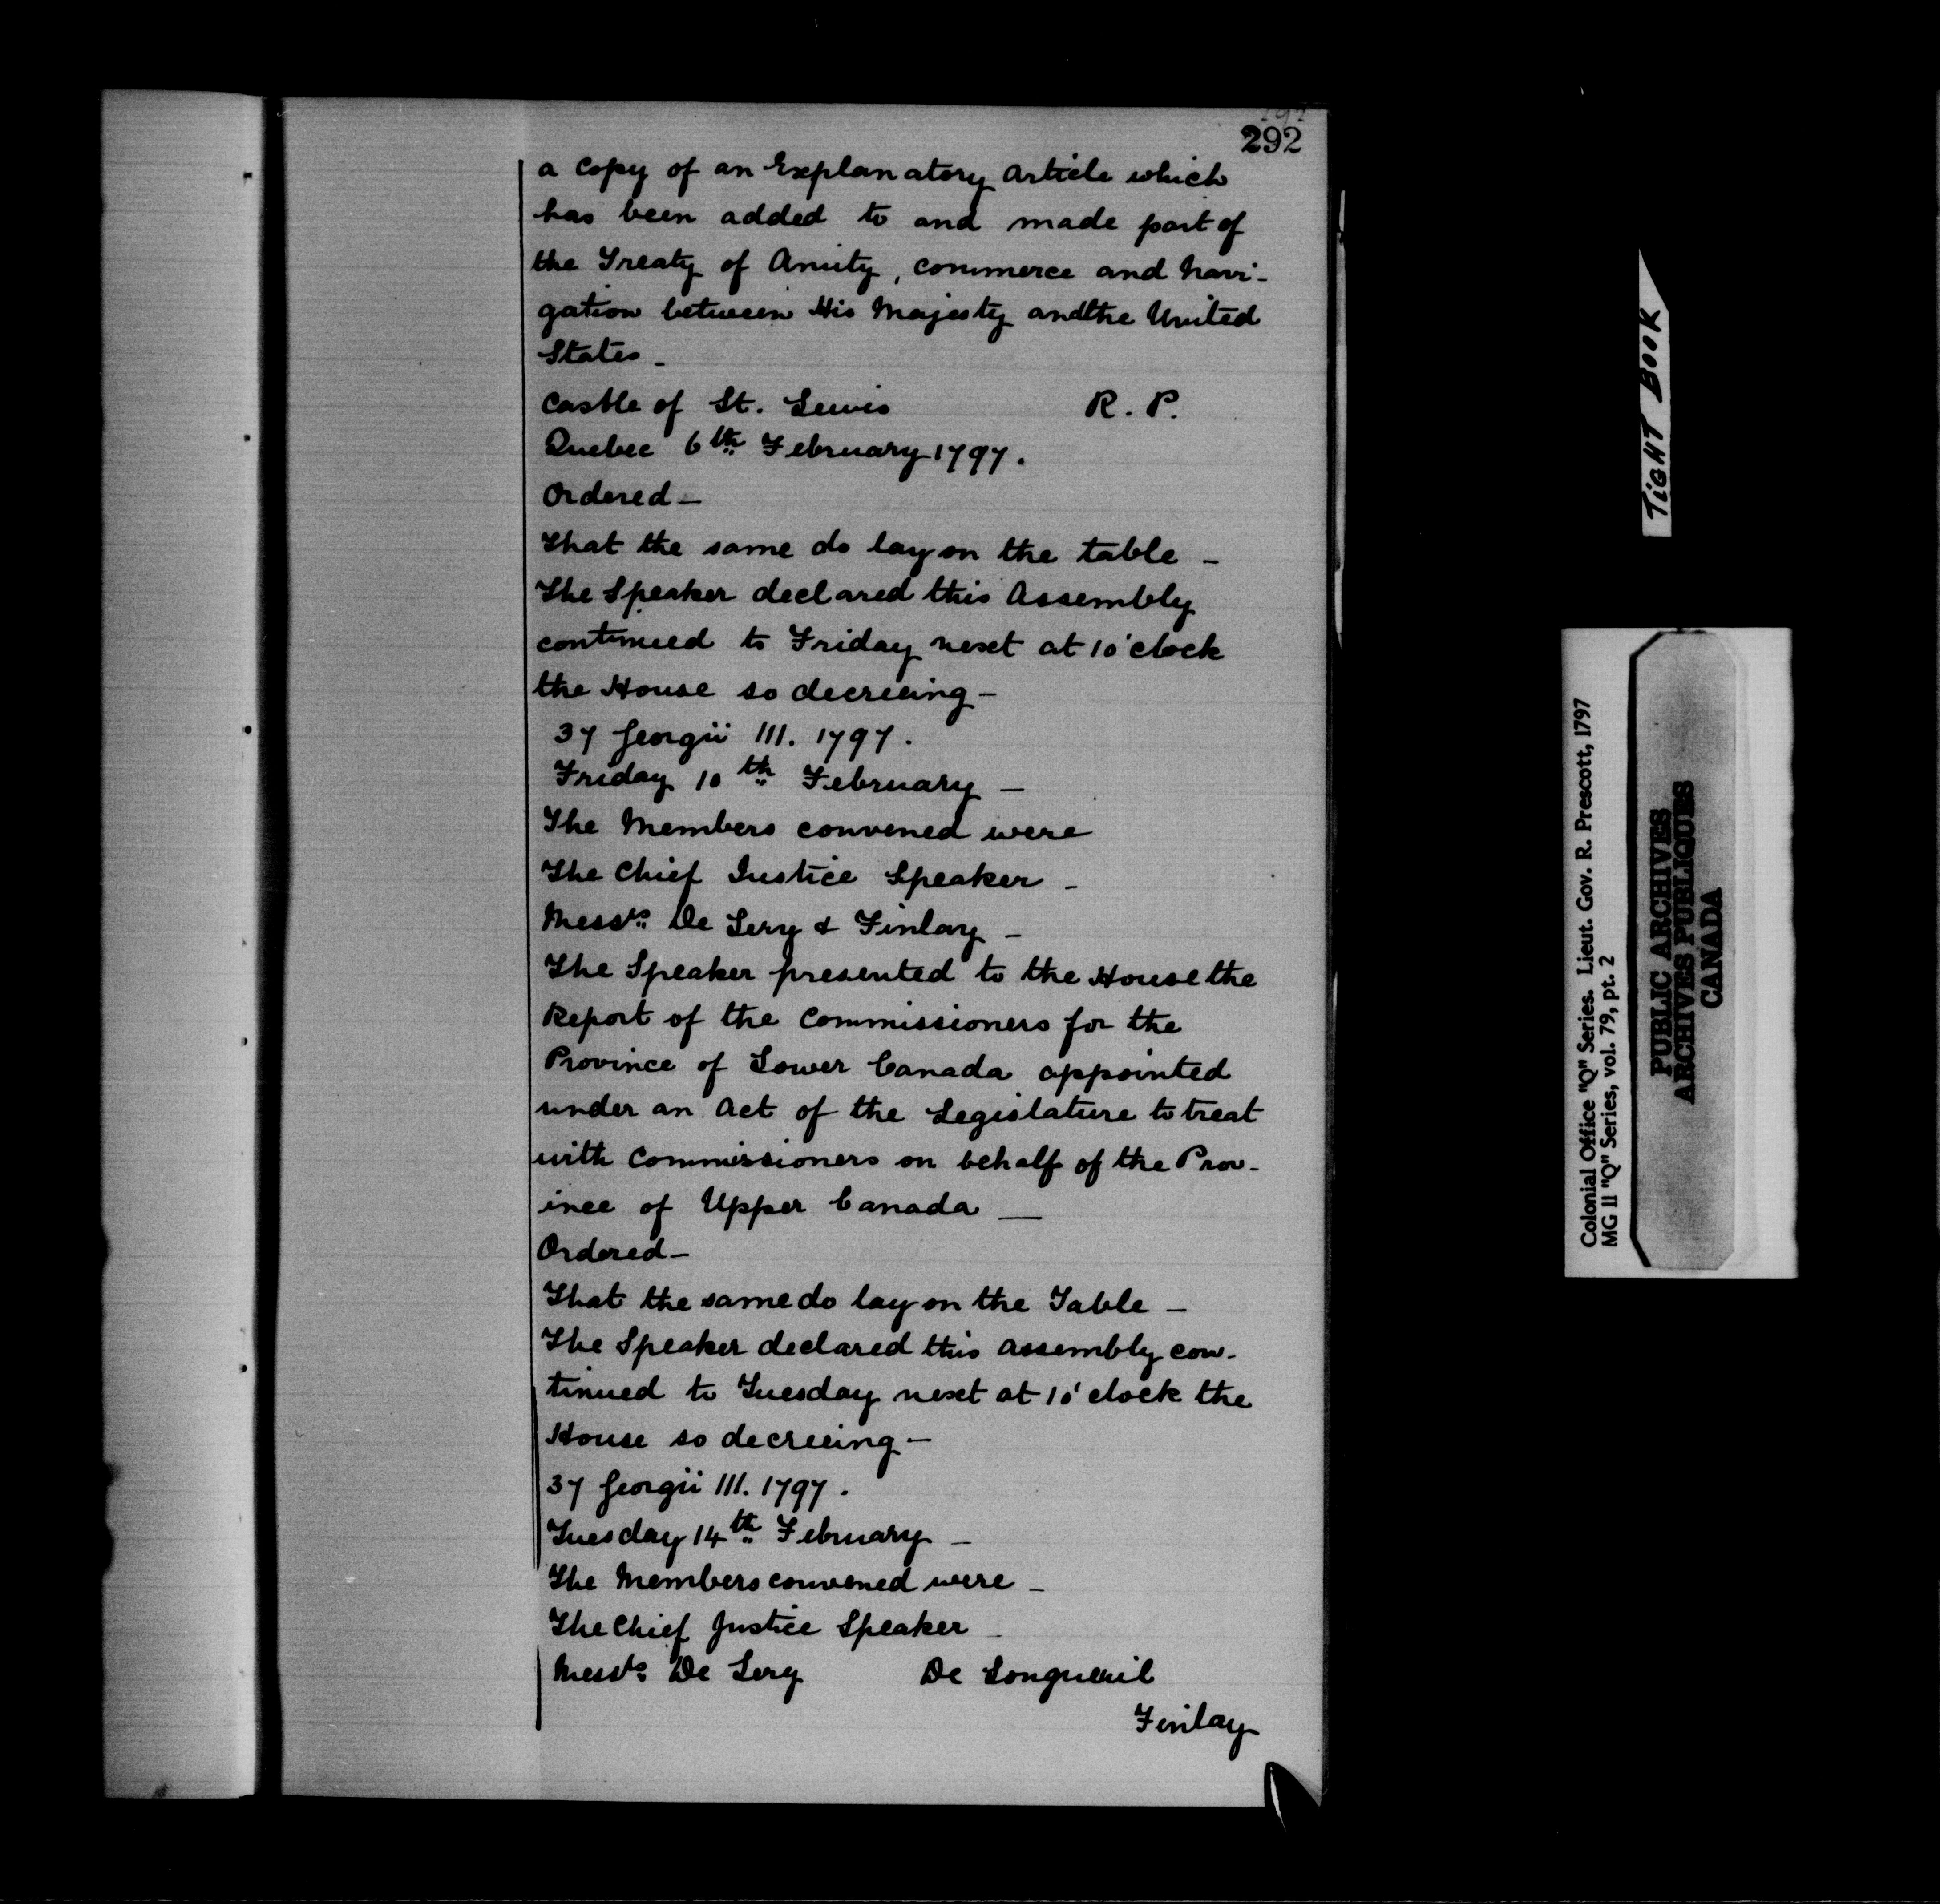 292
a copy of an Explanatory Article which
has been added to and made part of
the Treaty of Amity, commerce and Navi-
gation between His Majesty and the United
States -
Castle of St. Lewis R. P.
Quebec 6th February 1797.
Ordered -
That the same do lay on the table -
The Speaker declared this Assembly
continued to Friday next at 10'clock
the House so decreeing -
37 Georgii III. 1797.
Friday 10th February -
The Members convened were
The Chief Justice Speaker -
Messrs De Lery & Finlay -
The Speaker presented to the House the
Report of the Commissioners for the
Province of Lower Canada appointed
under an Act of the Legislature to treat
with Commissioners on behalf of the Prov-
ince of Upper Canada -
Ordered -
That the same do lay on the Table -
The Speaker declared this Assembly con-
tinued to Tuesday next at 10'clock the
House so decreeing -
37 Georgii III. 1797.
Tuesday 14th February -
The Members convened were -
The Chief Justice Speaker -
Messrs De Lery De Longueuil
Finlay
TIGHT BOOK
Colonial Office "Q" Series. Lieut. Gov. R. Prescott, 1797
MG 11 "Q" Series, vol. 79, pt. 2
PUBLIC ARCHIVES
ARCHIVES PUBLIQUES
CANADA